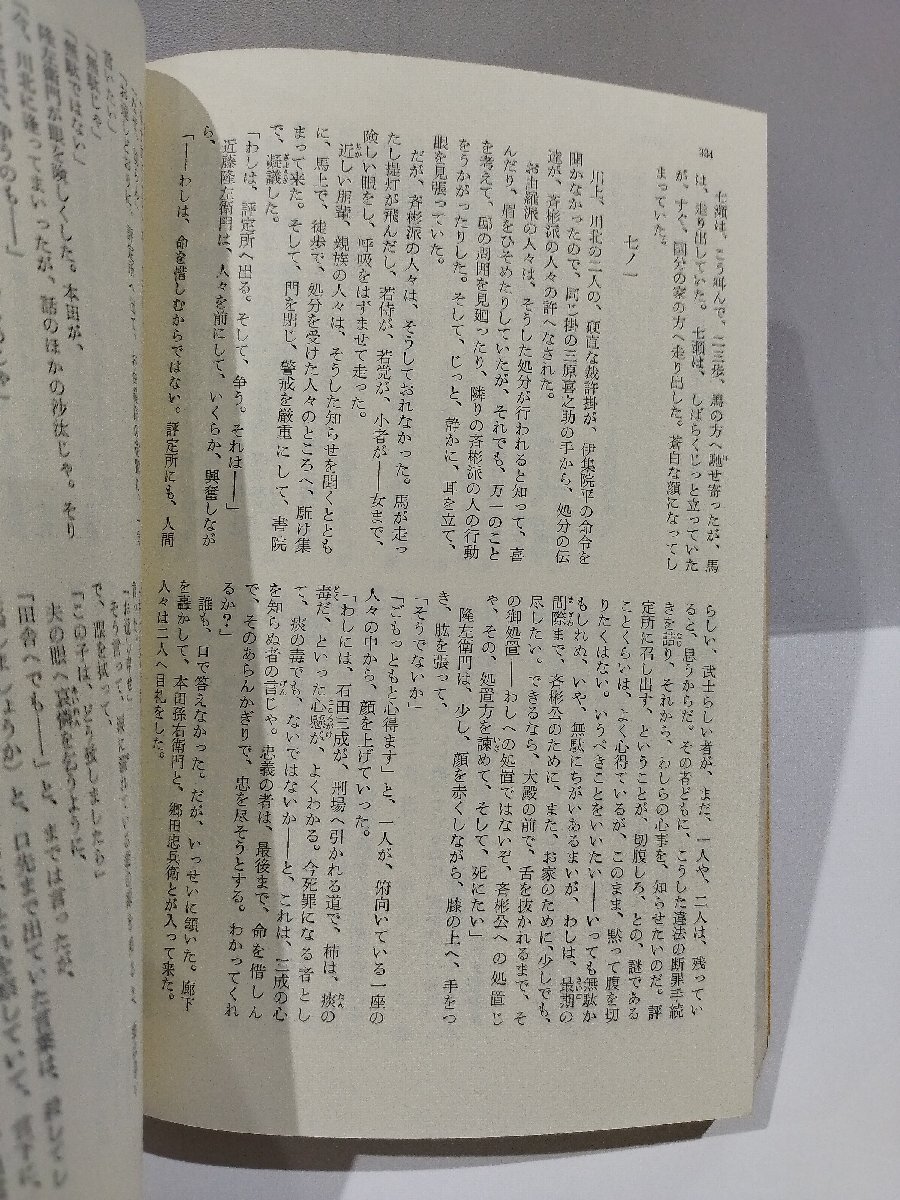 304
七瀬は、こう叫んで、二三歩、馬の方へ馳せ寄ったが、馬
は、走り出していた。七瀬は、しばらくじっと立っていた
が、すぐ、国分の家の方へ走り出した。蒼白な顔になってし
まっていた。
七ノ一
川上、川北の二人の、硬直な裁許掛が、伊集院平の命令を
聞かなかったので、同じ掛の三原喜之助の手から、処分の伝
達が、斉彬派の人々の許へなされた。
お由羅派の人々は、そうした処分が行われると知って、喜
んだり、眉をひそめたりしていたが、それでも、万一のこと
を考えて、邸の周囲を見廻ったり、隣りの斉彬派の人の行動
をうかがったりした。そして、じっと、静かに、耳を立て、
眼を見張っていた。
だが、斉彬派の人々は、そうしておれなかった。馬が走っ
たし提灯が飛んだし、若侍が、若党が、小者が――女まで、
険しい眼をし、呼吸をはずませて走った。
近しい朋輩、親族の人々は、そうした知らせを聞くととも
に、馬上で、徒歩で、処分を受けた人々のところへ、駈け集
まって来た。そして、門を閉じ、警戒を厳重にして、書院
で、凝議した。
「わしは、評定所へ出る。そして、争う。それは――」
近藤隆左衛門は、人々を前にして、いくらか、興奮しなが
ら、
「――わしは、命を惜しむからではない。評定所にも、人間
らしい、武士らしい者が、まだ、一人や、二人は、残ってい
ると、思うからだ。その者どもに、こうした違法の断罪手続
きを詰り、それから、わしらの心事を、知らせたいのだ。評
定所に召し出す、ということが、切腹しろ、との、謎である
ことくらいは、よく心得ているが、このまま、黙って腹を切
りたくはない。いうべきことをいいたい――いっても無駄か
もしれぬ、いや、無駄にちがいあるまいが、わしは、最期の
間際まで、斉彬公のために、また、お家のために、少しでも、
尽したい。できるなら、大殿の前で、舌を抜かれるまで、そ
の御処置――わしへの処置ではないぞ、斉彬公への処置じ
ゃ、その、処置方を諫めて、そして、死にたい」
隆左衛門は、少し、顔を赤くしながら、膝の上へ、手をつ
き、肱を張って、
「そうでないか」
「ごもっともと心得ます」と、一人が、俯向いている一座の
人々の中から、顔を上げていった。
「わしには、石田三成が、刑場へ引かれる道で、柿は、痰の
毒だ、といった心懸が、よくわかる。今死罪になる者とし
て、痰の毒でも、ないではないか――と、これは、三成の心
を知らぬ者の言じゃ。忠義の者は、最後まで、命を惜しん
で、そのあらんかぎりで、忠を尽そうとする。わかってくれ
るか？」
誰も、口で答えなかった。だが、いっせいに頷いた。廊下
を轟かして、本田孫右衛門と、郷田忠兵衛とが入って来た。
人々は二人へ目礼をした。
「無駄じゃ」
「無駄ではない」
隆左衛門が眼を険しくした。本田が、
「今、川北に逢ってまいったが、話のほかの沙汰じゃ。そり
そう言って、
で、涙を拭って、
「この子は、どう致しましたら」
夫の眼へ哀憐を乞うように、
「田舎へでも――」と、までは言ったが、